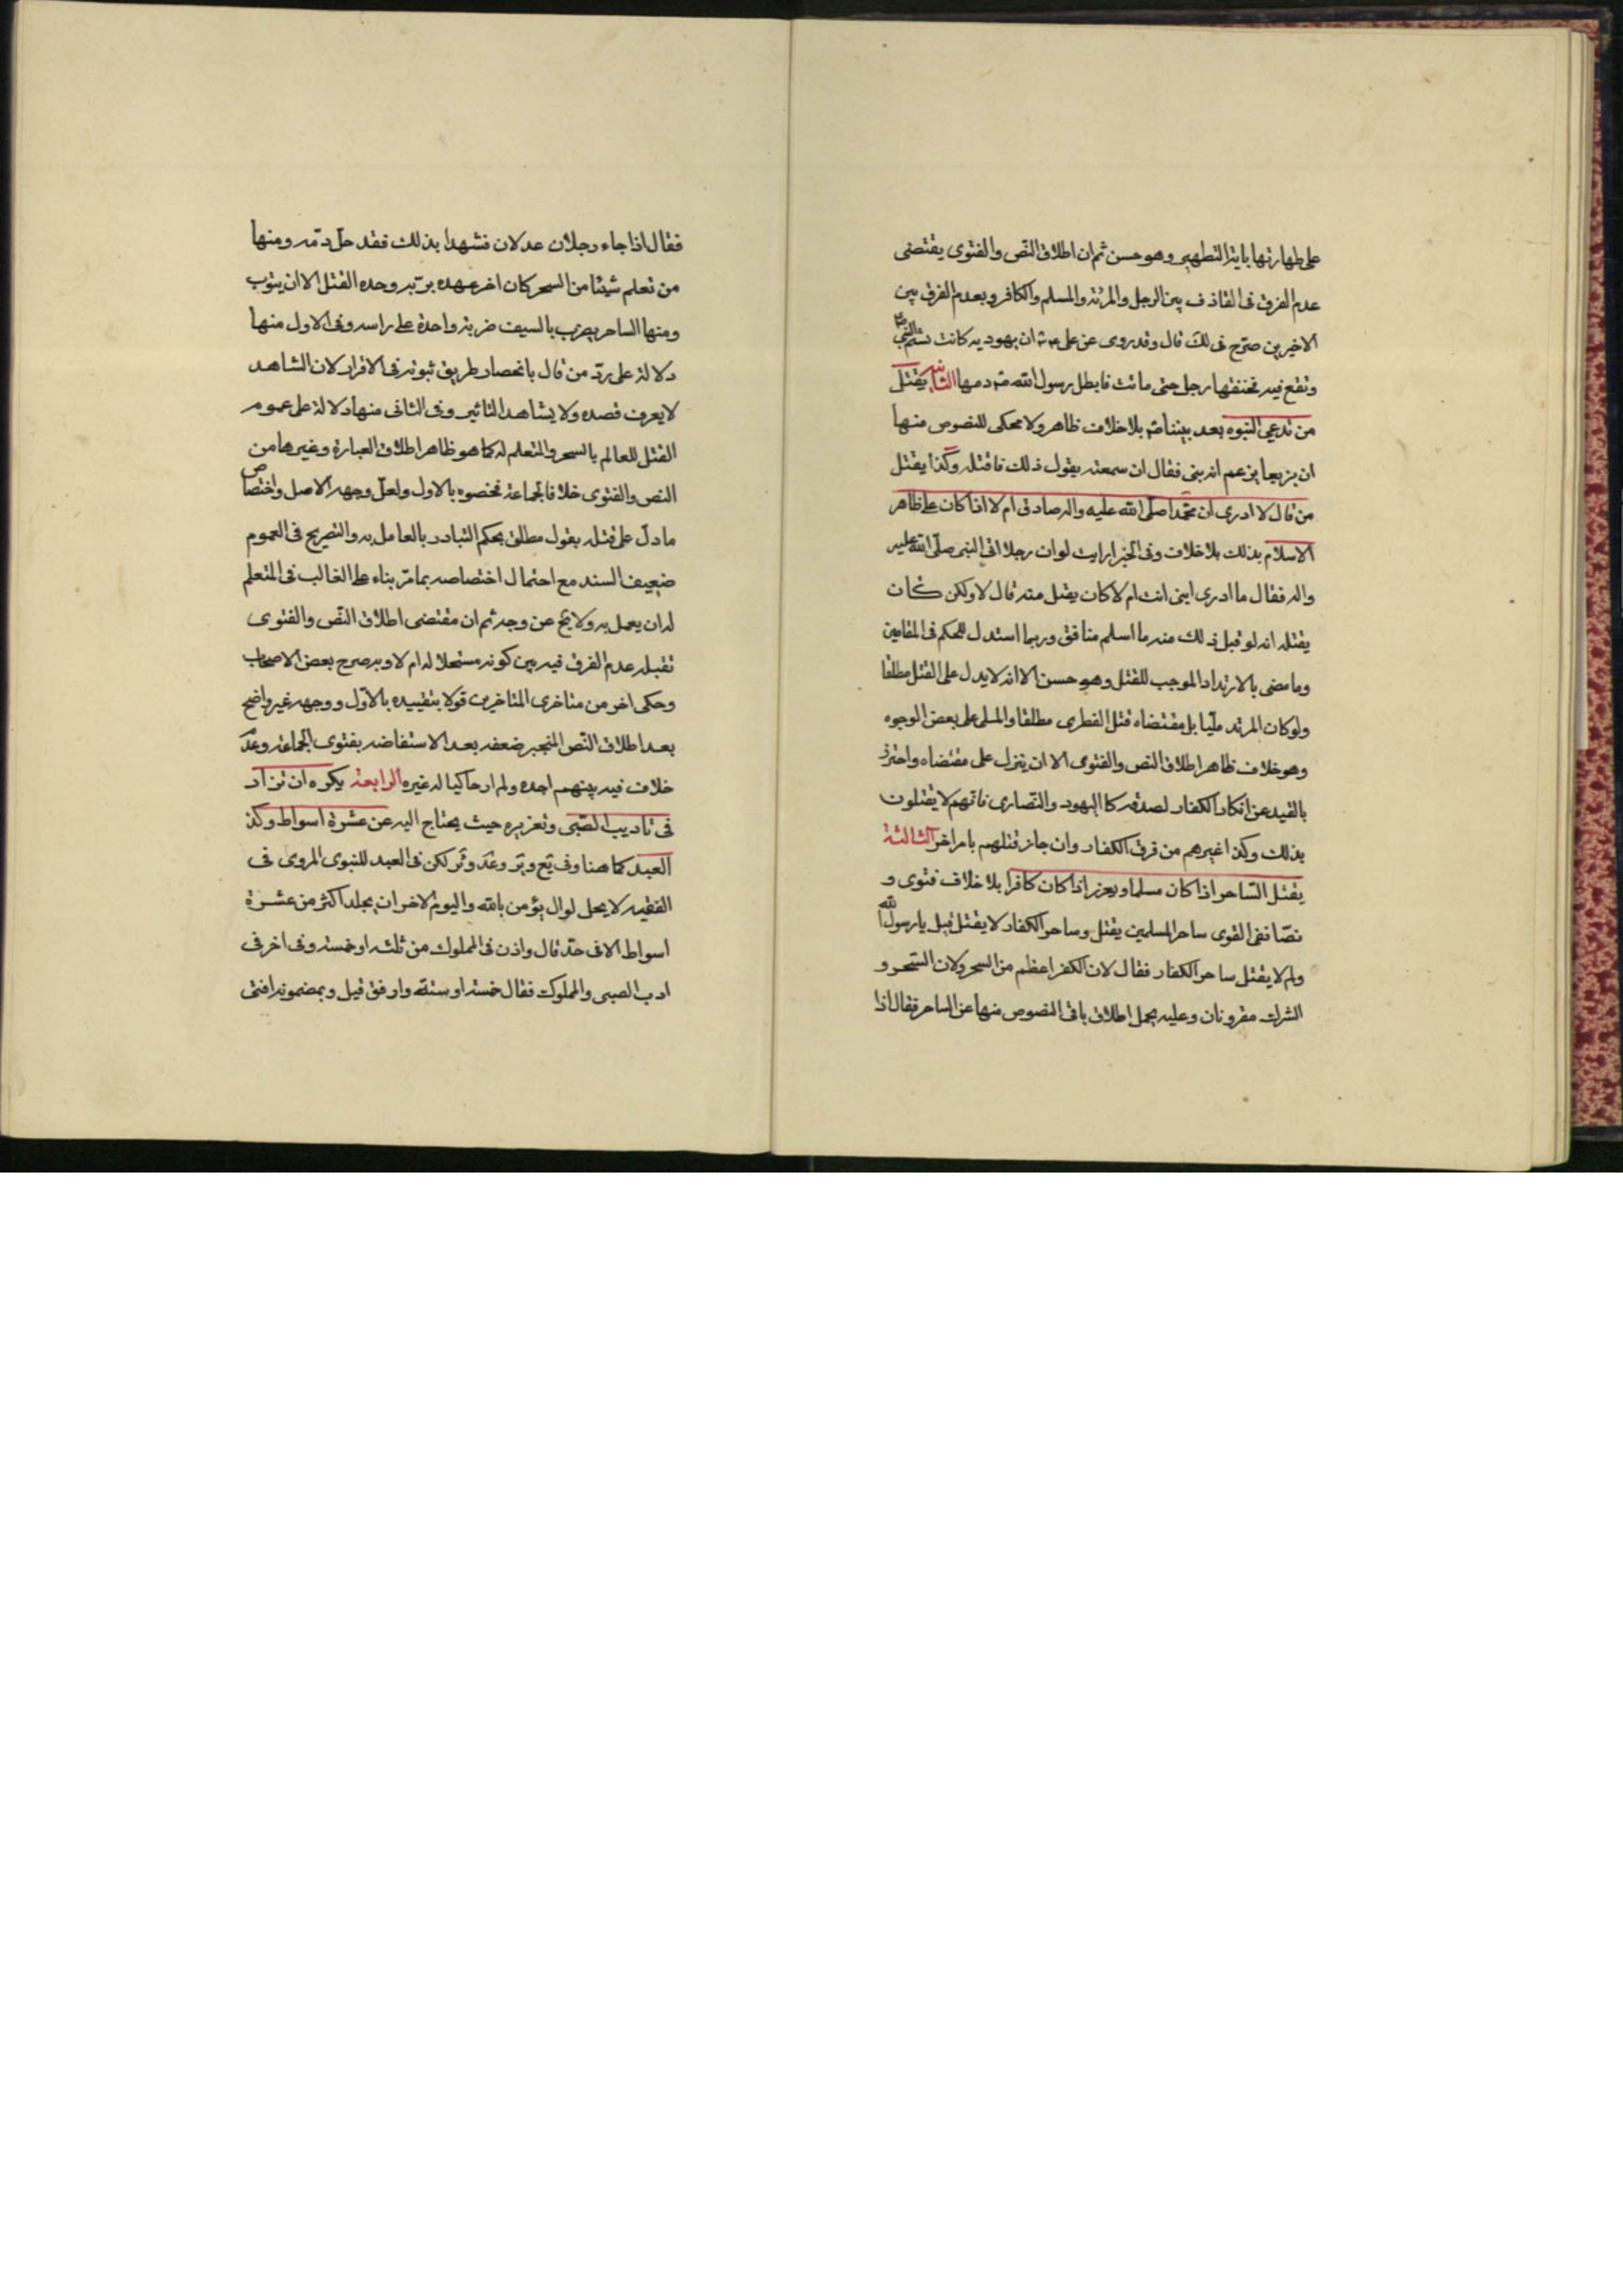 على طهارتها باية التطهير وهو حسن ثم ان اطلاق النص والفتوى يقتضى
عدم الفرق فى القاذف بين الرجل والمرئة والمسلم والكافر وبعدم الفرق بين
الاخيرين صرح فى لك قال وقد روى عن على ان يهودية كانت تشتم النبى ص
وتقع فيه فخنقها رجل حتى ماتت فابطل رسول الله دمها الثانية يقتل
من تدعى النبوه بعد نبينا بلا خلاف ظاهر ولا محكى للنصوص منها
ان بزيعا يزعم انه نبى فقال ان سمعته يقول ذلك فاقتله وكذا يقتل
من قال لا ادرى ان محمدا صلى الله عليه واله صادق ام لا اذا كان على ظاهر
الاسلام بذلك بلا خلاف وفى الخبر ارايت لو ان رجلا اتى النبى صلى الله عليه
واله فقال ما ادرى انبى انت ام لا كان يقبل منه قال لا ولكن كان
يقتله انه لو قبل ذلك منه ما اسلم منافق وربما استدل للحكم فى المقامين
وما مضى بالارتداد الموجب للقتل وهو حسن الا انه لا يدل على القتل مطلقا
ولو كان المرتد مليا بل مقتضاه قتل الفطرى مطلقا والملى على بعض الوجوه
وهو خلاف ظاهر اطلاق النص والفتوى الا ان ينزل على مقتضاه واحترز
بالقيد عن انكار الكفار لصدقه كاليهود والنصارى فانهم لا يقتلون
بذلك وكذا غيرهم من فرق الكفار وان جاز قتلهم بامر اخر الثالثة
يقتل الساحر اذا كان مسلما ويعزر اذا كان كافرا بلا خلاف فتوى و
نصا ففى القوى ساحر المسلمين يقتل وساحر الكفار لا يقتل قيل يا رسول الله
ولم لا يقتل ساحر الكفار فقال لان الكفر اعظم من السحر ولان السحر و
الشرك مقرونان وعليه يحمل اطلاق باقى النصوص منها عن الساحر فقال اذا
فقال اذا جاء رجلان عدلان فشهدا بذلك فقد حل دمه ومنها
من تعلم شيئا من السحر كان اخر عهده بربه وحده القتل الا ان يتوب
ومنها الساحر يضرب بالسيف ضربة واحدة على راسه وفى الاول منها
دلالة على رد من قال بانحصار طريق ثبوته فى الاقرار لان الشاهد
لا يعرف قصده ولا يشاهد التاثير وفى الثانى منها دلالة على عموم
القتل للعالم بالسحر والمتعلم له كما هو ظاهر اطلاق العبارة وغيرها من
النص والفتوى خلافا لجماعة فخصوه بالاول ولعل وجهه الاصل واختصاص
ما دل على قتله بقول مطلق بحكم التبادر بالعامل به والتصريح فى العموم
ضعيف السند مع احتمال اختصاصه بما مر بناء على الغالب فى المتعلم
له ان يعمل به ولا يخ عن وجه ثم ان مقتضى اطلاق النص والفتوى
تقبله عدم الفرق فيه بين كونه مستحلا له ام لا وبه صرح بعض الاصحاب
وحكى اخر من متاخرى المتاخرين قولا بتقييده بالاول ووجهه غير واضح
بعد اطلاق النص المنجبر ضعفه بعد الاستفاضه بفتوى الجماعة وعد
خلاف فيه بينهم اجده ولم ار حاكيا له غيره الرابعة يكره ان تزاد
فى تاديب الصبى وتعزيره حيث يحتاج اليه عن عشرة اسواط وكذ
العبد كما هنا وفى يع وير وعد وتر لكن فى العبد للنبوى المروى فى
الفقيه لا يحل لوال يؤمن بالله واليوم الاخر ان يجلد اكثر من عشرة
اسواط الا فى حد قال واذن فى المملوك من ثلثه او خمسة وفى اخر فى
ادب الصبى والمملوك فقال خمسة او ستة وارفق قيل وبمضمونه افتى